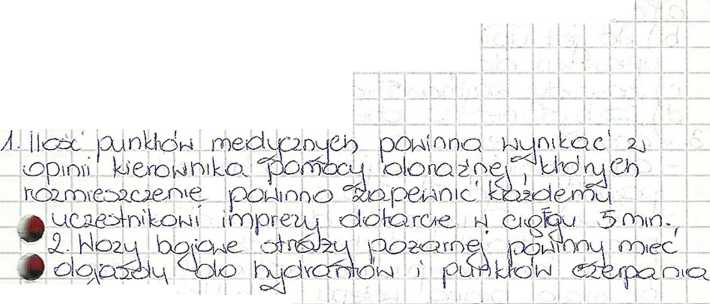 1. Ilość punktów medycznych powinna wynikać z
opinii kierownika pomocy doraźnej, których
rozmieszczenie powinno zapewnić każdemu
uczestnikowi imprezy dotarcie w ciągu 5 min.,
2. Wozy bojowe straży pożarnej powinny mieć
dojazdy do hydrantów i punktów czerpania